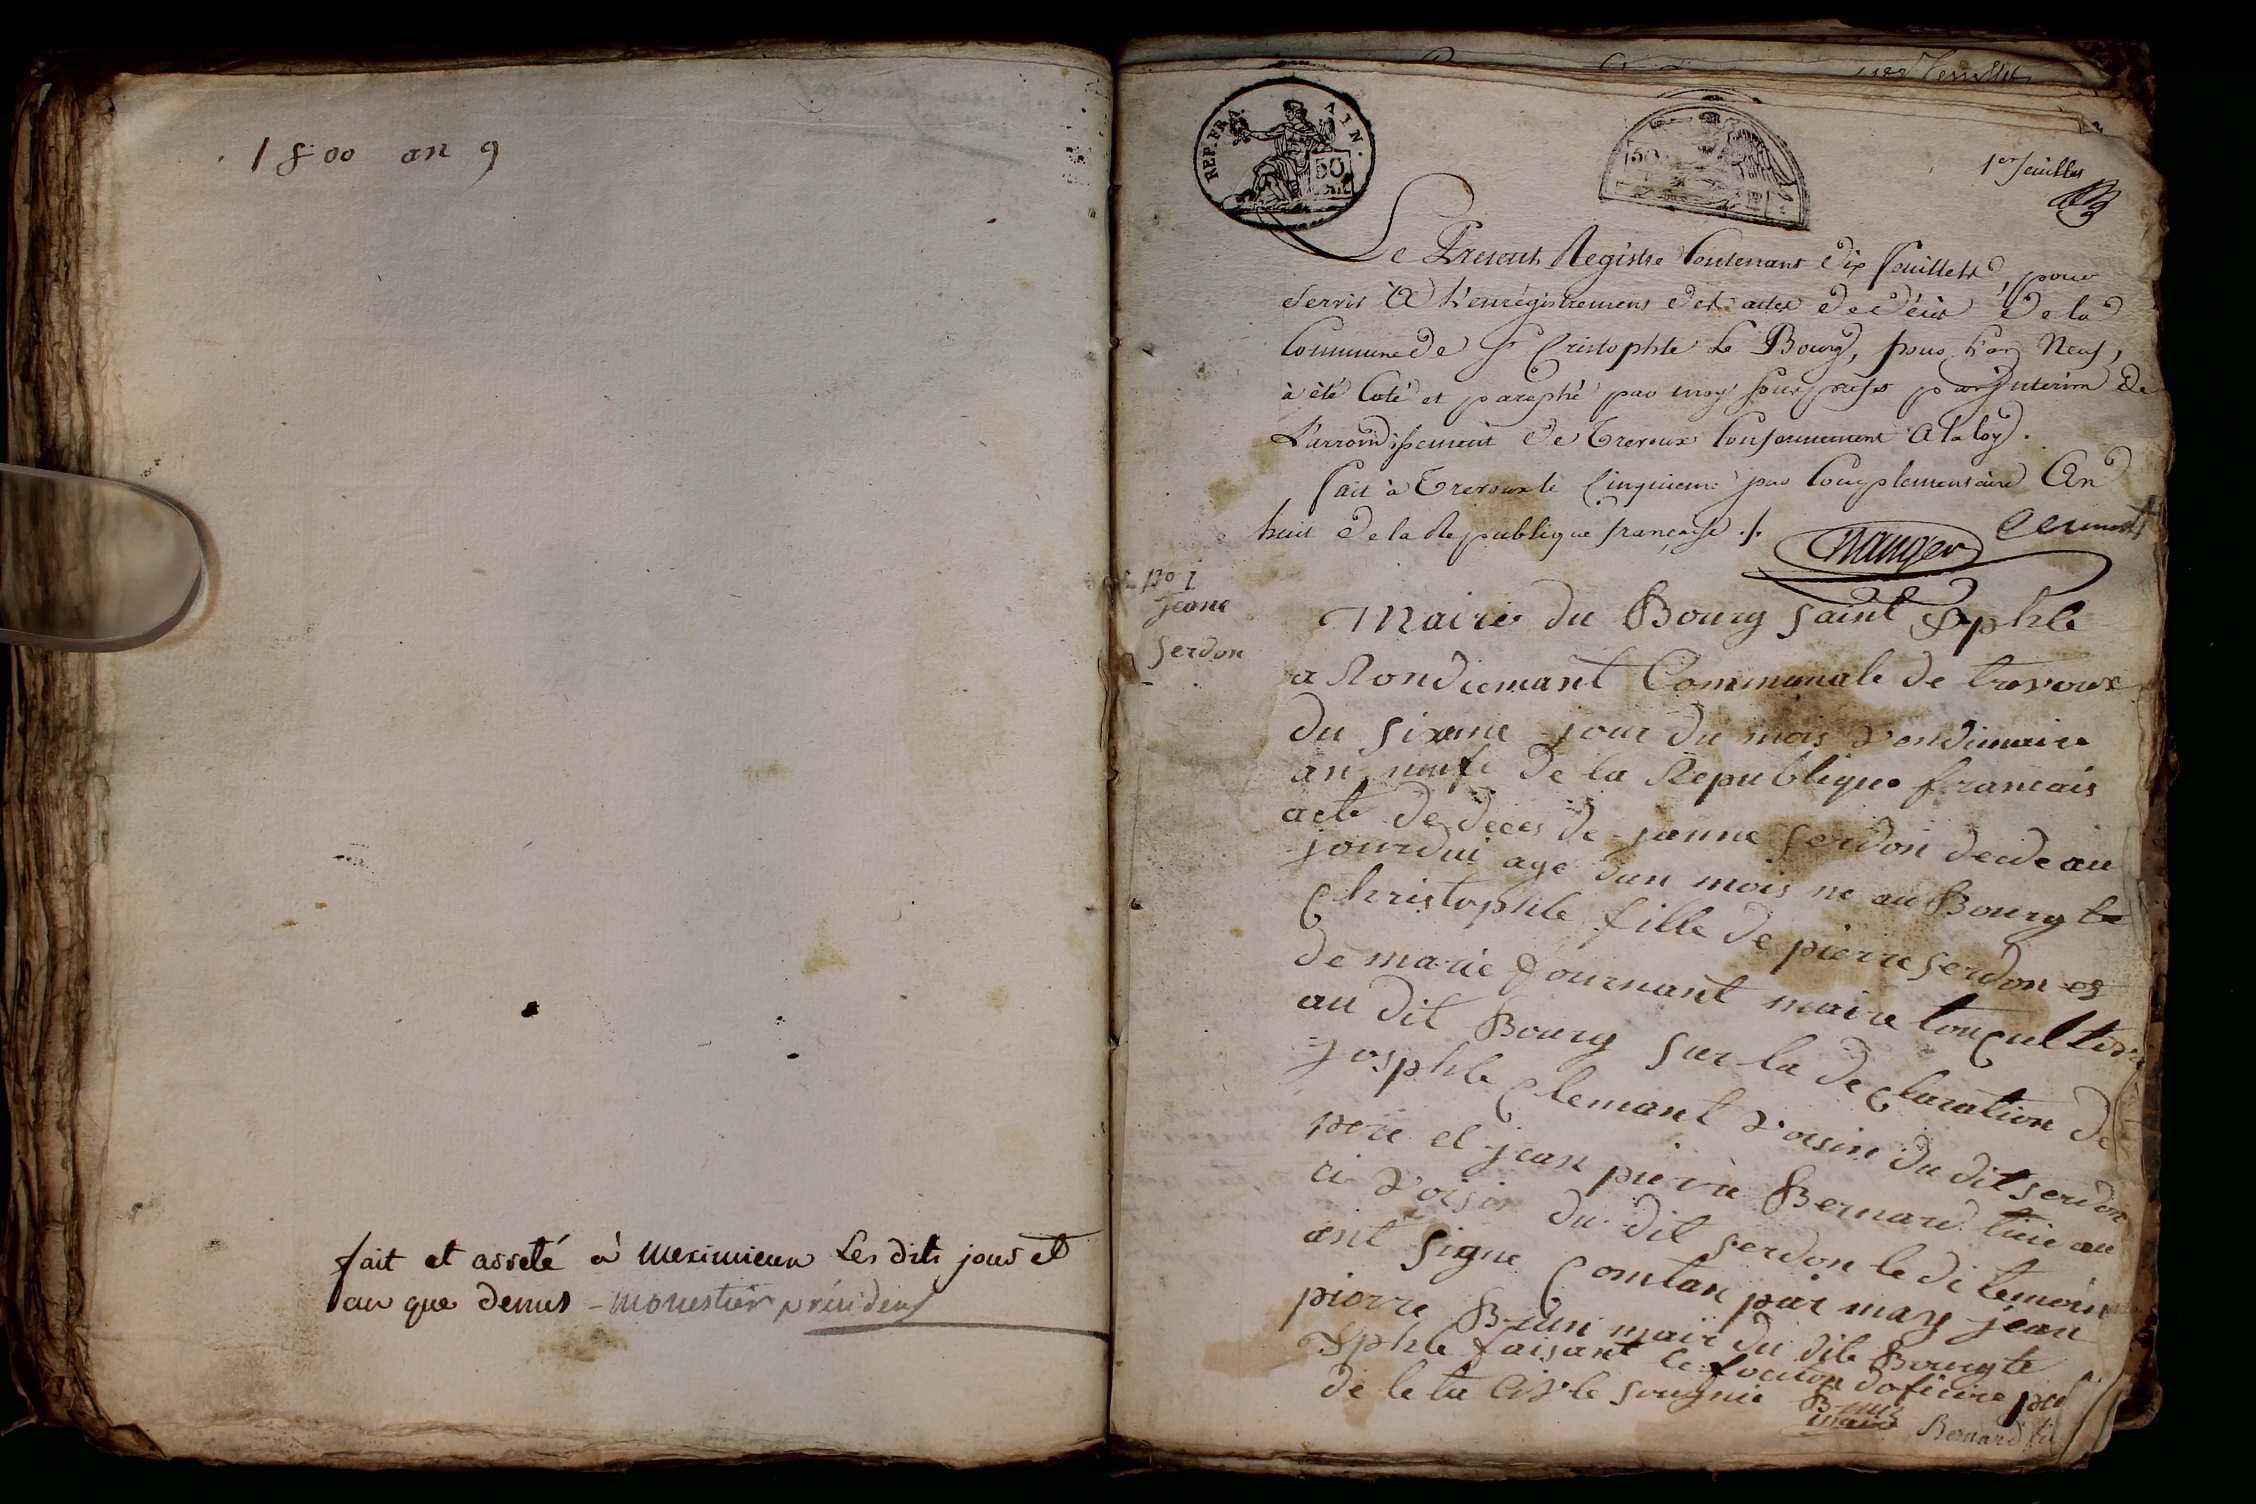 1800 an 9
fait et arreté à meximieux Les dits jour et
an que dessus monestier président
REP. FRA. AIN.
50
50
1er feuillet
Le Present Registre Contenant dix feuillets, pour
servir à l'enrégistrement des actes de décès de la
Commune de St Cristophle Le Bourg, pour l'an Neuf,
à été Coté et paraphé par moy sous prefet par Interim de
L'arrondissement de Trevoux Conformement à la loy.
fait à Trevoux le Cinquieme jour Complementaire An
huit de la Republique française ./.
No 1
Jeane
Serdon
Mairie du Bourg saint xphle
a Rondicemant Communale de trevoux
du sixeme jour du mois vendimaire
an neufe de la Republique francais
acte de deces de janne serdon decede au
jourdui age dun mois ne au Bourg te
Christophle fille de pierre serdon et
de marie fournant maire tou cultiva
au dit Bourg sur la declaration de
josphle Clemant voisin du dit serdon
pere et jean pierre Bernard
ci voisin du dit serdon le di temoin
ont signe Comtan par may jean
pierre Brun maire du dit Bourg te
xphle faisant le foncton doficire pu
de le ta Civle sougnie Brun
maire Bernard